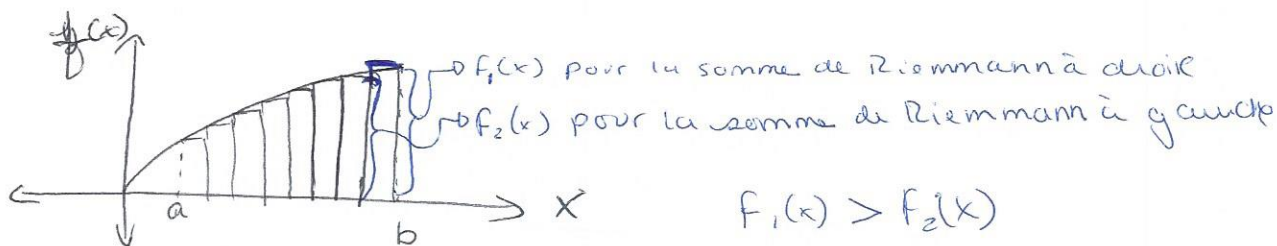 f(x)
f₁(x) pour la somme de Riemmann à droite
f₂(x) pour la somme de Riemmann à gauche
a
b
X
f₁(x) > f₂(x)